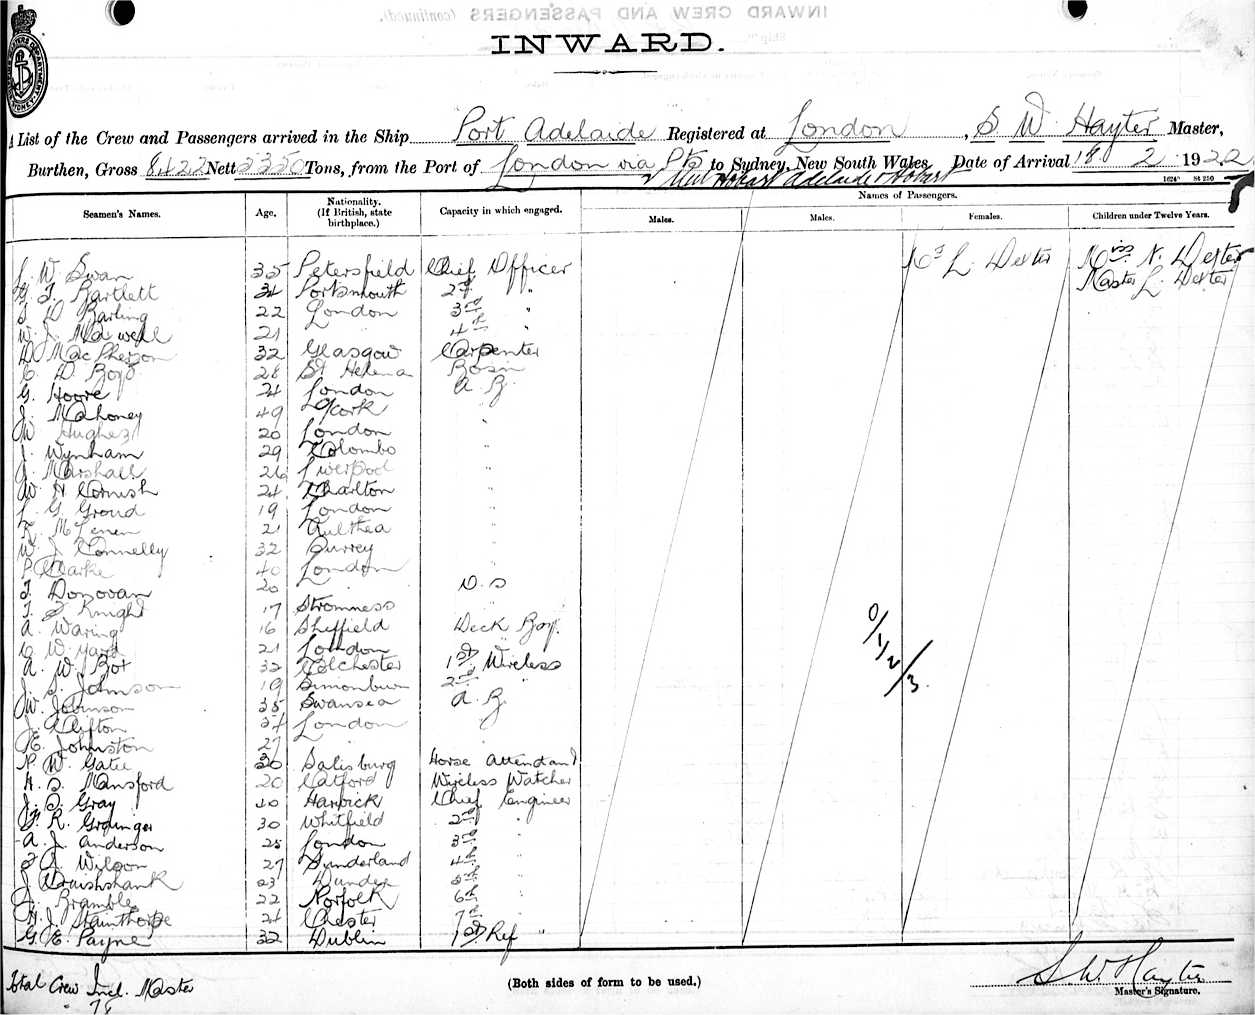 INWARD CREW AND PASSENGERS (continued).
INWARD.
List of the Crew and Passengers arrived in the Ship Port Adelaide Registered at London, S. W. Hayter Master,
Burthen, Gross 8422 Nett Tons, from the Port of London via Pts to Sydney, New South Wales, Date of Arrival 18 2 1922
Adelaide & Hobart
Seamen's Names. Age. Nationality. (If British, state birthplace.) Capacity in which engaged. Names of Passengers.
Males. Males. Females. Children under Twelve Years.
W. Swan 35 Petersfield Chief Officer L. Dexter Miss N. Dexter
Bartlett 34 Portsmouth 2nd " Master L. Dexter
D Barling 22 London 3rd "
W. J. 21 4th "
MacPherson 32 Glasgow Carpenter
D Boyd 28 St Helena Bosin
G. Hoore 24 London A B.
J. Mahoney 49 Cork "
W Hughes 20 London "
J. Wynham 29 Colombo "
J. Marshall 26 Liverpool "
W. H Cornish 24 Charlton "
G. Groud 19 London "
21 Aulthea "
W. J. Connelly 32 Surrey "
P. Clarke 40 London "
J. Donovan 20 " O.S
Knight 17 Stromness "
A. Waring 16 Sheffield Deck Boy.
W. Yard 21 London "
A. W. Bot 32 Colchester 1st Wireless
J. S. Johnson 19 Simonburn 2nd "
W. Johnson 35 Swansea A B.
J. Clifton 34 London
E. Johnston 27 "
N. W. Gatie 30 Salisburg Horse Attendant
H. S. Mansford 20 Catford Wireless Watcher
J. S. Gray 40 Harpick Chief Engineer
R. Grainger 30 Whitfield 2nd "
A. J. Anderson 25 London 3rd "
A. Wilson 27 Sunderland 4th "
J Cruishshank 23 Dundee 5th "
J. Bramble 22 Norfolk 6th "
H. J. Stainthorpe 24 Chester 7th "
G. E. Payne 32 Dublin 1st Ref "
0/1/2/3.
Total Crew Incl. Master
78
(Both sides of form to be used.)
S. W. Hayter
Master's Signature.